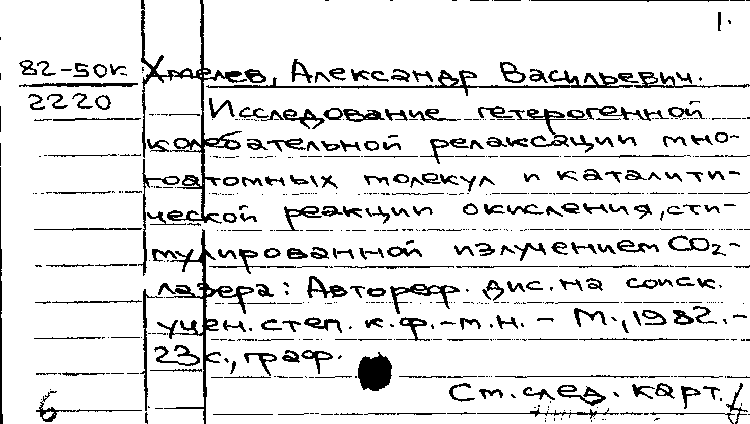 1.
82-50к Хмелев, Александр Васильевич.
2220 Исследование гетерогенной
колебательной релаксации мно-
гоатомных молекул и каталити-
ческой реакции окисления, сти-
мулированной излучением CO₂-
лазера: Автореф. дис. на соиск.
учен. степ. к.ф.-м.н. - М., 1982. -
23 с., граф.
См. след. карт.
6